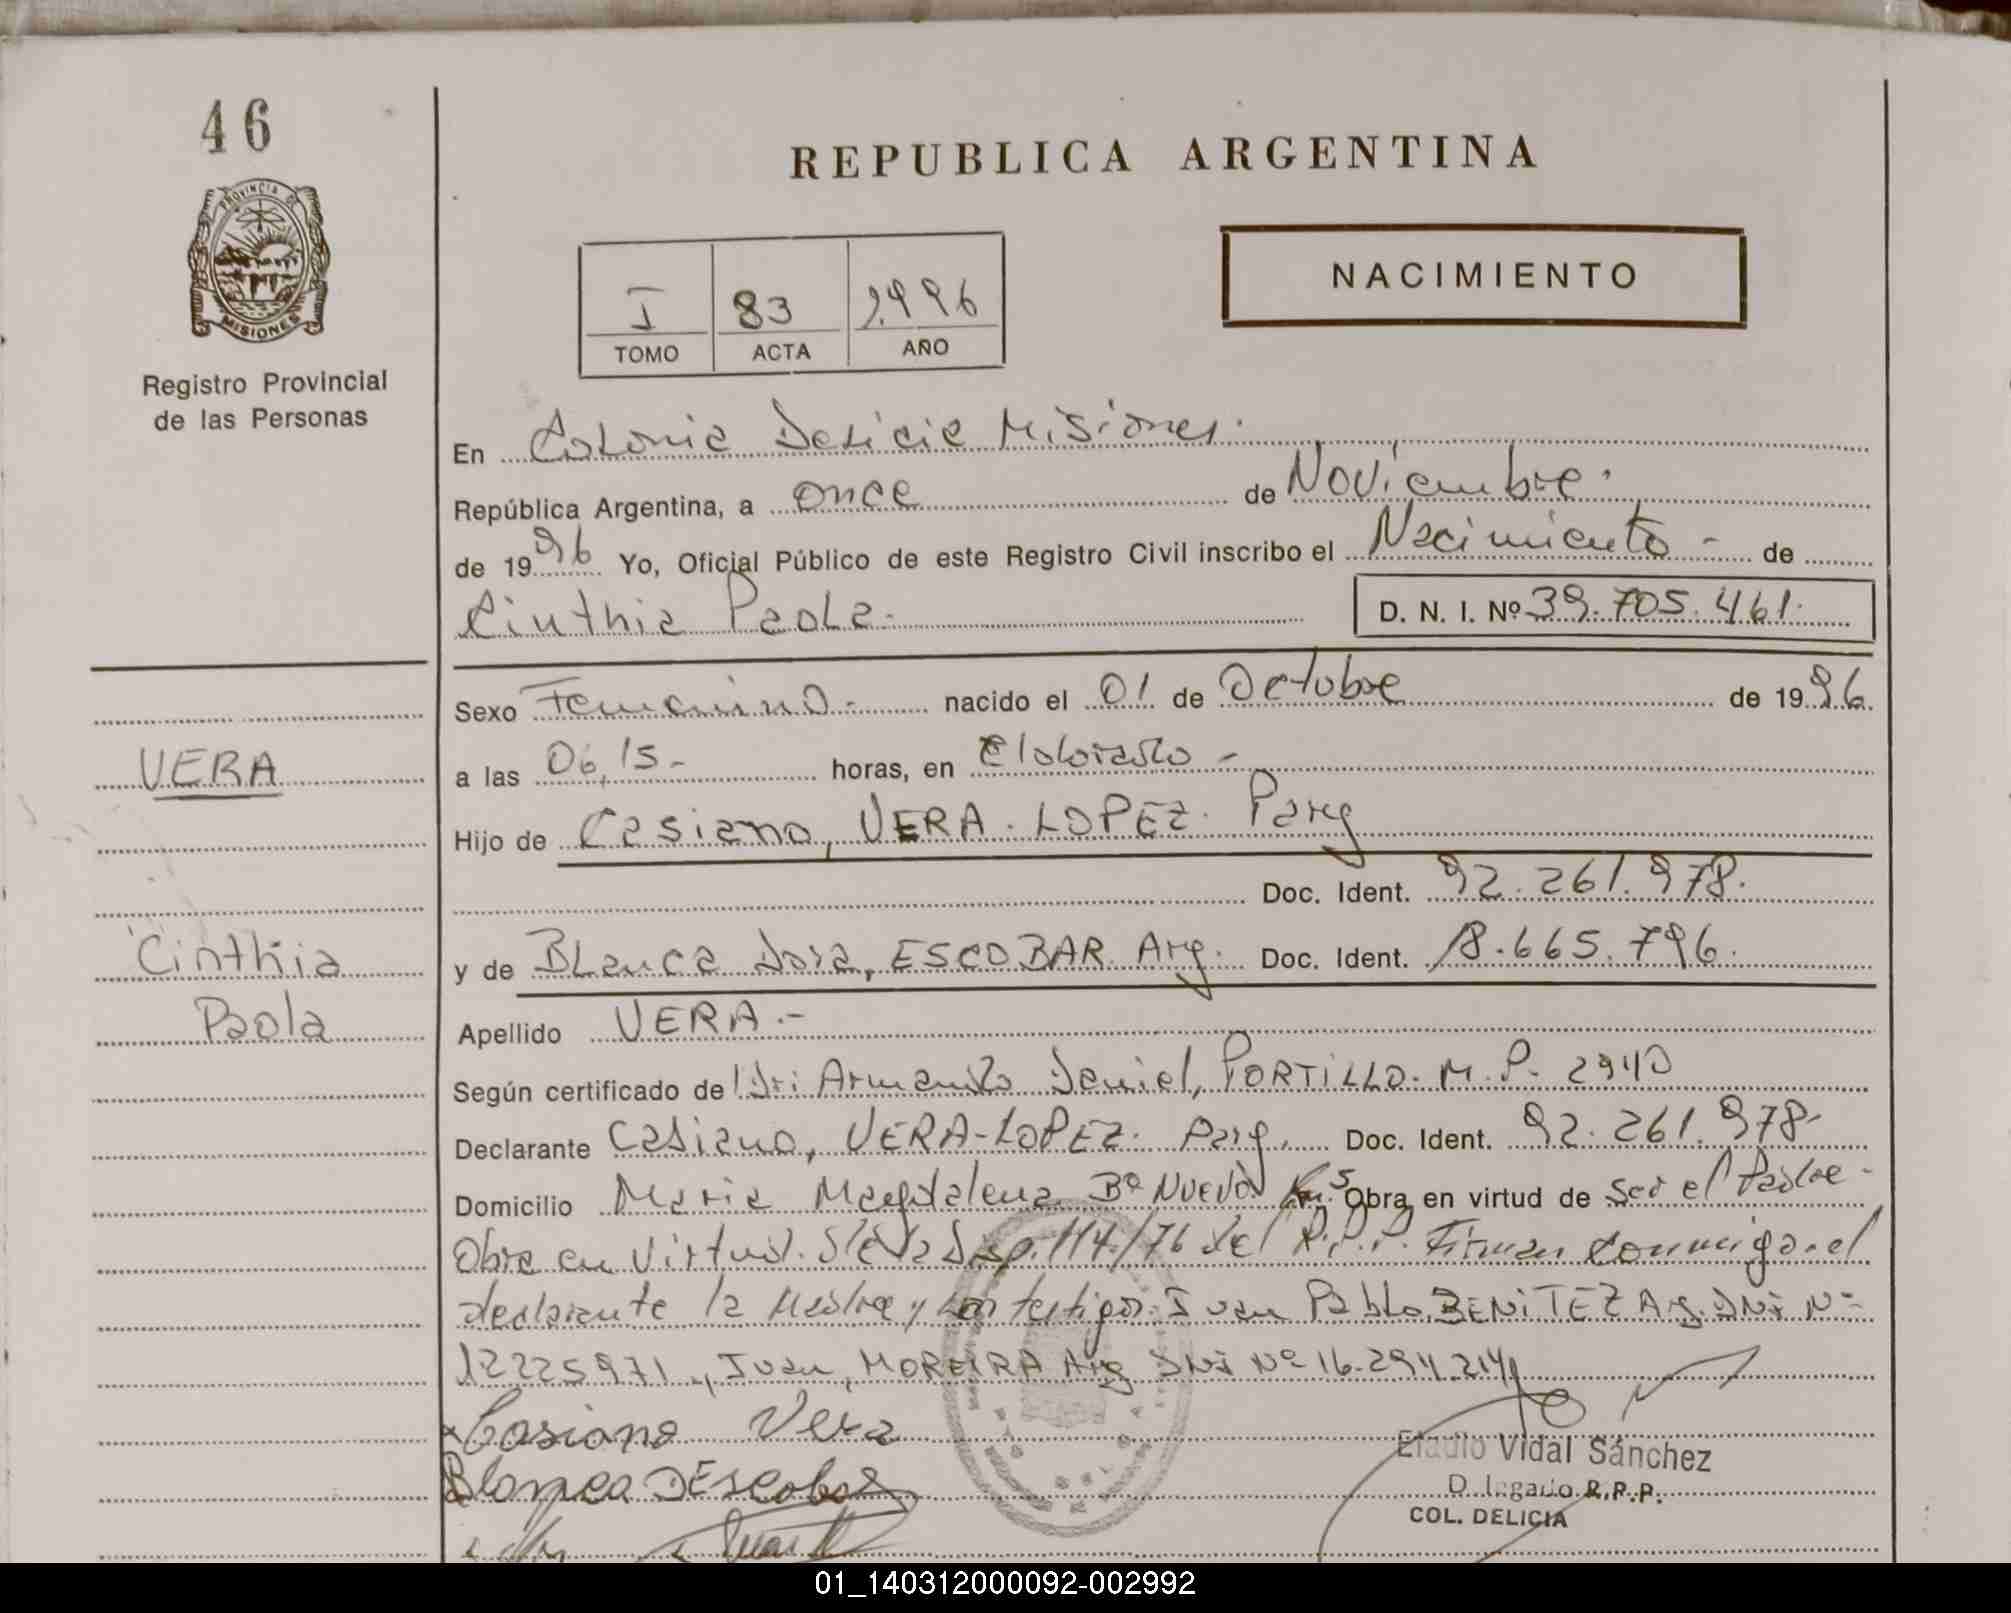 46
PROVINCIA DE
MISIONES
Registro Provincial
de las Personas
REPUBLICA ARGENTINA
I 83 1.996
TOMO ACTA AÑO
NACIMIENTO
En Colonia Delicia Misiones.
República Argentina, a once de Noviembre.
de 1996 Yo, Oficial Público de este Registro Civil inscribo el Nacimiento - de
Cinthia Paola. D. N. I. Nº 39.705.461.
Sexo Femenino - nacido el 01 de Octubre de 1996.
VERA
a las 06,15 - horas, en Eldorado -
Hijo de Casiano, VERA. LOPEZ. Parg
Doc. Ident. 92.261.978.
Cinthia
y de Blanca Dora, ESCOBAR. Arg. Doc. Ident. 18.665.796.
Paola
Apellido VERA.-
Según certificado de Dr: Armando Daniel, PORTILLO. M.P. 2940
Declarante Casiano, VERA-LOPEZ. Parg. Doc. Ident. 92.261.978-
Domicilio Maria Magdalena Bº NUEVO Km.5 Obra en virtud de ser el Padre -
Obra en virtud. de la Disp. 114/76 del R.P.P. Firman conmigo el
declarante la Madre y los testigos: Juan Pablo, BENITEZ Arg. DNI Nº
12225971., Juan, MOREIRA Arg DNI Nº 16.294.214
Casiano Vera
Blanca D Escobar
Eladio Vidal Sánchez
Delegado R.P.P.
COL. DELICIA
01_140312000092-002992